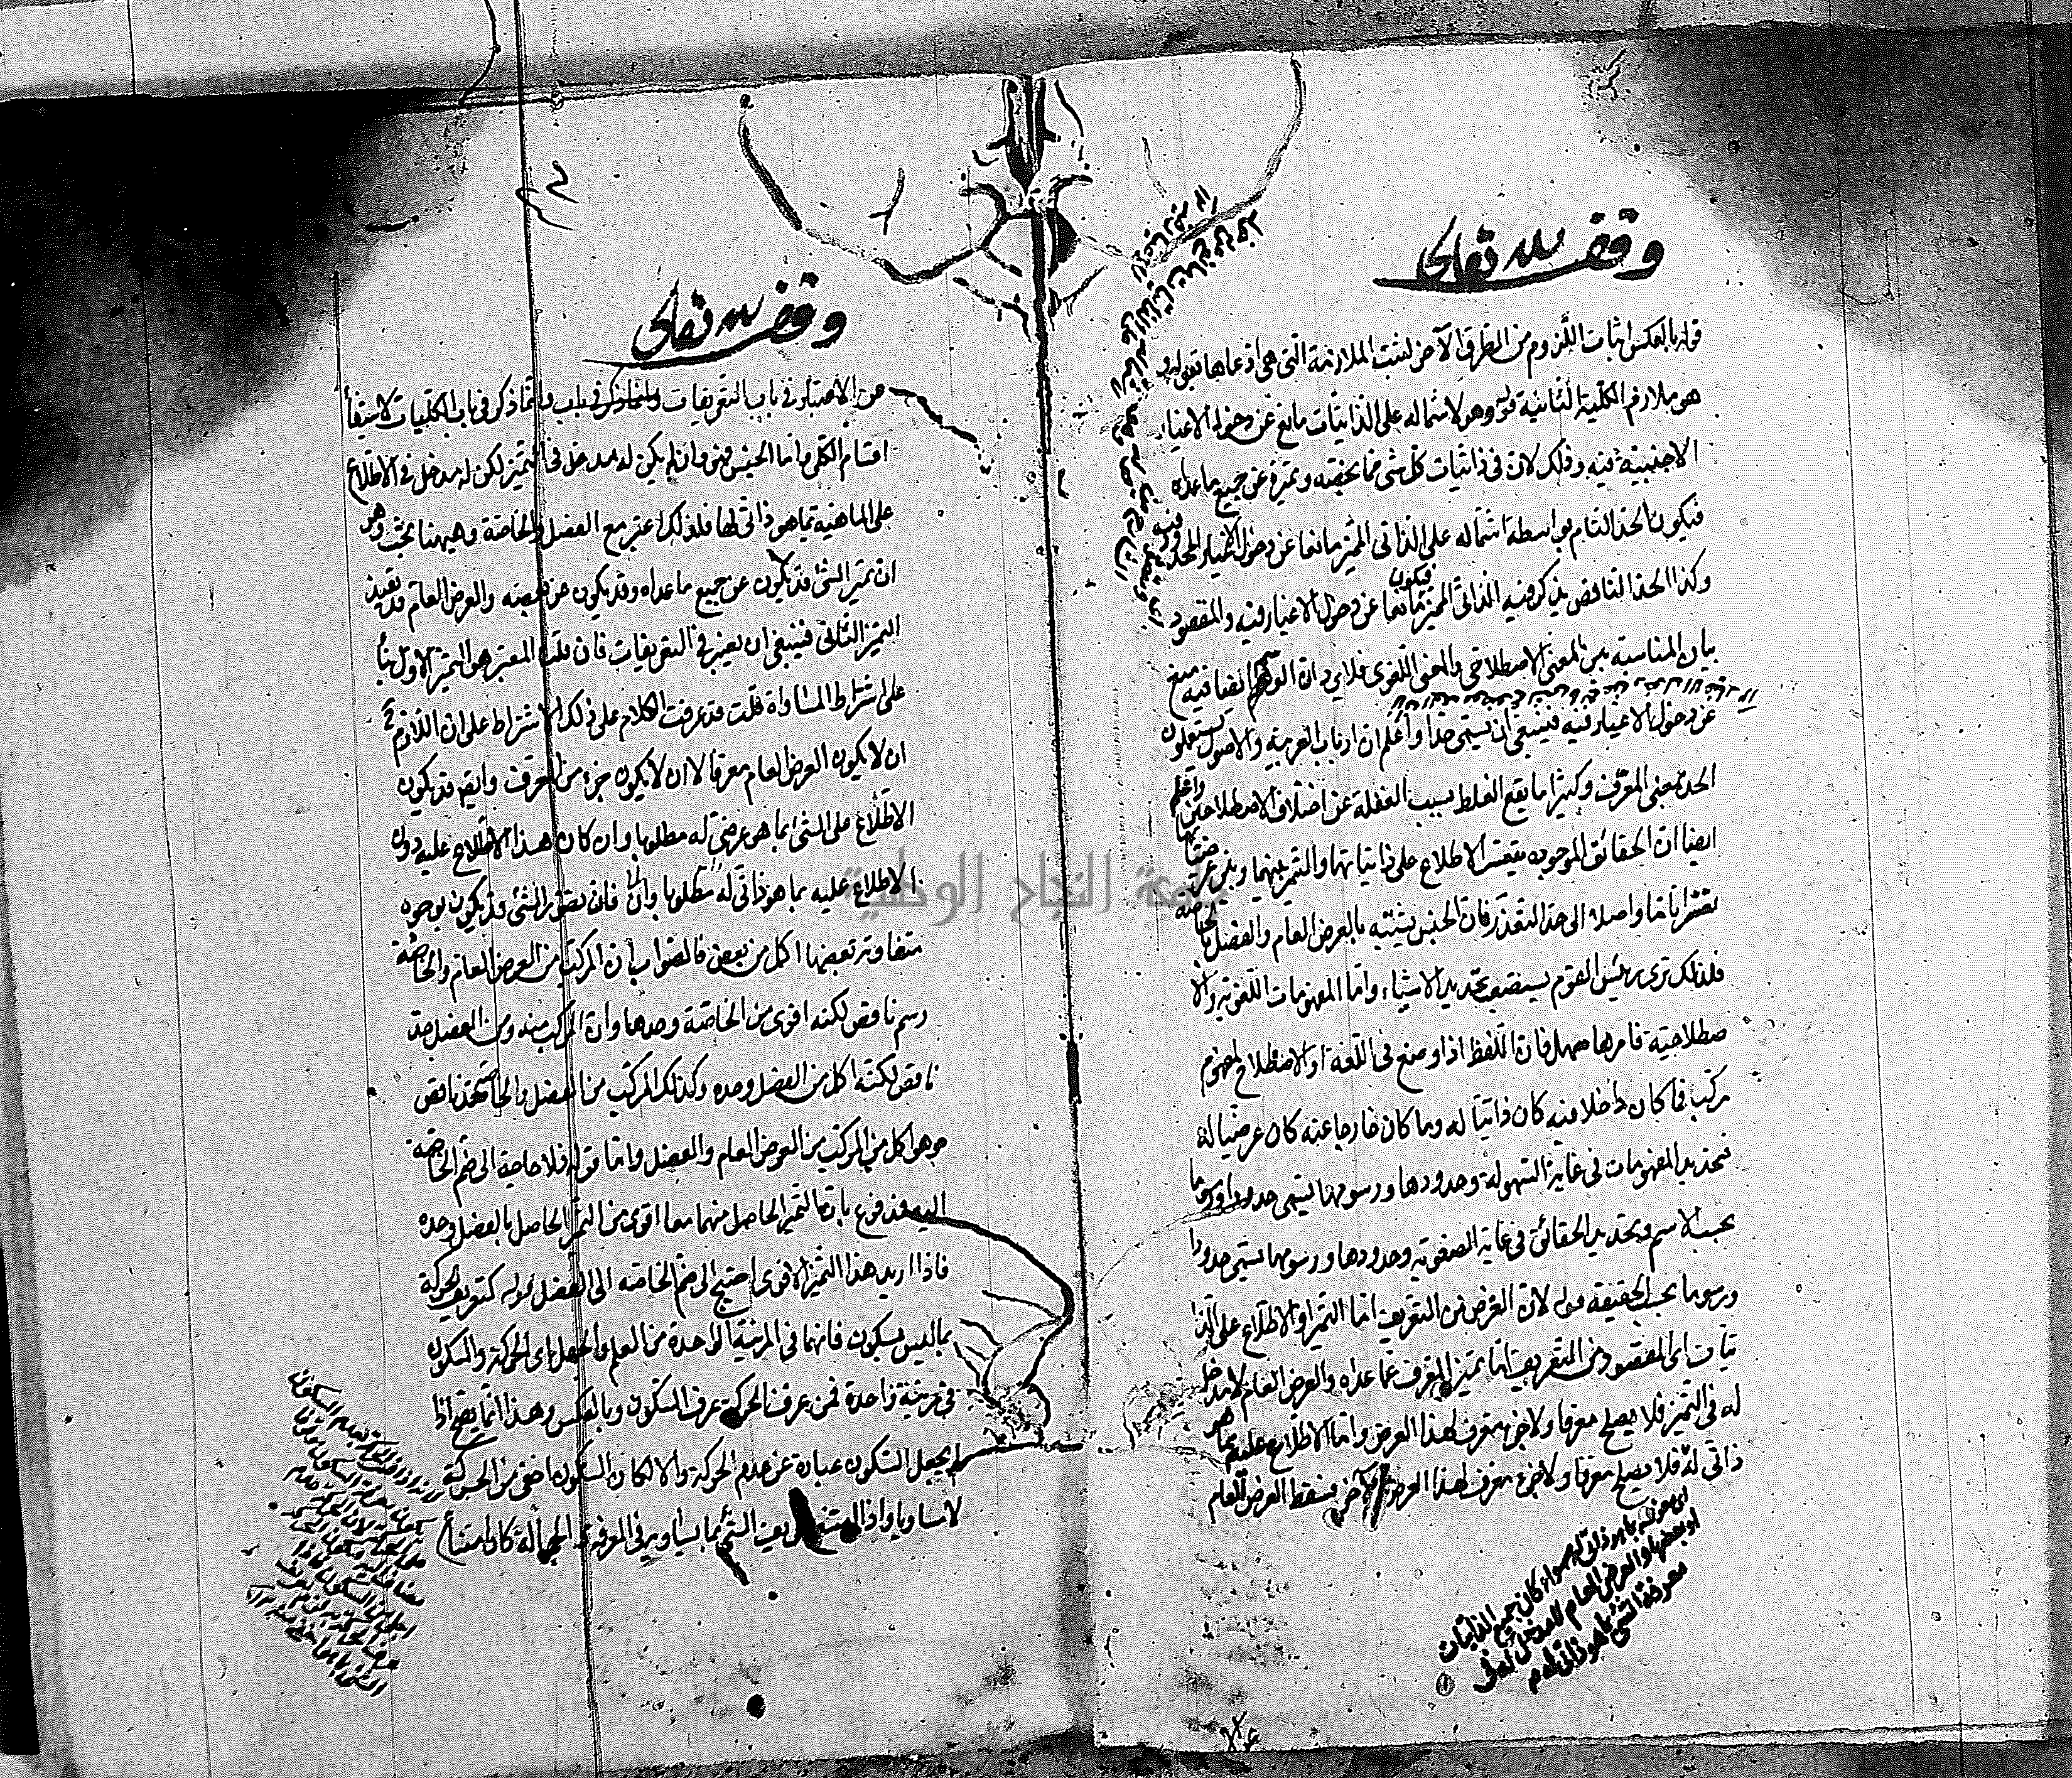 وقف لله تعالى
قوله بالعكس اثبات اللزوم من الطرف الآخر ليثبت الملازمة التى هى ادعاها بقوله
هو ملازم الكلية الثانية قوله وهو لاشتماله على الذاتيات مانع عن دخول الاغيار
الاجنبية فيه وذلك لان فى ذاتيات كل شئ ما يخصه ويميزه عن جميع ما عداه
فيكون الحد التام بواسطة اشتماله على الذاتى المميز مانعا عن دخول الاغيار المحدود فيه
وكذا الحد الناقص يذكر فيه الذاتى المميز فيكون مانعا عن دخول الاغيار فيه والمقصود
بيان المناسبة بين المعنى الاصطلاحى والمعنى اللغوى فلا يرد ان الرسم ايضا فيه منع
عن دخول الاغيار فيه فينبغى ان يسمى حدا واعلم ان ارباب العربية والاصول يستعملون
الحد بمعنى المعرف وكثيرا ما يقع الغلط بسبب الغفلة عن اختلاف الاصطلاحين واعلم
ايضا ان الحقائق الموجودة يتعسر الاطلاع على ذاتياتها والتمييز بينها وبين عرضياتها
تعسرا تاما واصلا الى حد التعذر فان الجنس يشتبه بالعرض العام والفصل بالخاصة
فلذلك ترى رئيس القوم يستصعب تحديد الاشياء واما المفهومات اللغوية والا
صطلاحية فامرها سهل فان اللفظ اذا وضع فى اللغة او الاصطلاح لمفهوم
مركب فما كان داخلا فيه كان ذاتيا له وما كان خارجا عنه كان عرضيا له
فتحديد المفهومات فى غاية السهولة وحدودها ورسومها يسمى حدودا ورسوما
بحسب الاسم وتحديد الحقائق فى غاية الصعوبة وحدودها ورسومها يسمى حدودا
ورسوما بحسب الحقيقة قوله لان الغرض من التعريف اما التمييز او الاطلاع على الذا
تيات اى المقصود من التعريف اما تمييز المعرف عما عداه والعرض العام لا مدخل
له فى التمييز فلا يصلح معرفا ولا جزء معرف لهذا الغرض واما الاطلاع عليه بما هو
ذاتى له فلا يصلح معرفا ولا جزء معرف لهذا الغرض الآخر فسقط العرض العام
اى معرفته بما هو ذاتى له سواء كان جميع الذاتيات
او بعضها والعرض العام لا مدخل له فى
معرفة الشئ بما هو ذاتى له م
وقف لله تعالى
عن الاعتبار فى باب التعريفات وانما ذكر فى باب الكليات لاستيفاء
اقسام الكلى واما الجنس فهو وان لم يكن له مدخل فى التمييز لكن له مدخل فى الاطلاع
على الماهية بما هو ذاتى لها فلذلك اعتبر مع الفصل والخاصة وههنا بحث وهو
ان تميز الشئ قد يكون عن جميع ما عداه وقد يكون عن بعضه والعرض العام قد يفيد
التميز الثانى فينبغى ان يعتبر فى التعريفات فان قلت المعتبر هو التميز الاول بناء
على اشتراط المساواة قلت قد عرفت الكلام على ذلك الاشتراط على ان اللازم
ان لا يكون العرض العام معرفا لا ان لا يكون جزء من المعرف وايضا قد يكون
الاطلاع على الشئ بما هو عرضى له مطلوبا وان كان هذا الاطلاع عليه دون
الاطلاع عليه بما هو ذاتى له مطلوبا فان تصور الشئ قد يكون بوجوه
متفاوتة بعضها اكمل من بعض فالصواب ان المركب من العرض العام والخاصة
رسم ناقص لكنه اقوى من الخاصة وحدها وان المركب منه ومن الفصل حد
ناقص لكنه اكمل من الفصل وحده وكذلك المركب من الفصل والخاصة حد ناقص
وهو اكمل من المركب من العرض العام والفصل واما قوله فلا حاجة الى ضم الخاصة
اليه فمدفوع بان التمييز الحاصل منهما معا اقوى من التمييز الحاصل بالفصل وحده
فاذا اريد هذا التمييز الاقوى احتيج الى ضم الخاصة الى الفصل قوله كتعريف الحركة
بما ليس بسكون فانهما فى المرتبة الواحدة من العلم والجهل اى الحركة والسكون
فى مرتبة واحدة فمن عرف الحركة عرف السكون وبالعكس وهذا انما يصح اذا
لم يجعل السكون عبارة عن عدم الحركة والا لكان السكون اخفى من الحركة
لا مساويا واذا امتنع تعريف الشئ بما يساويه فى المعرفة والجهالة كان امتناع